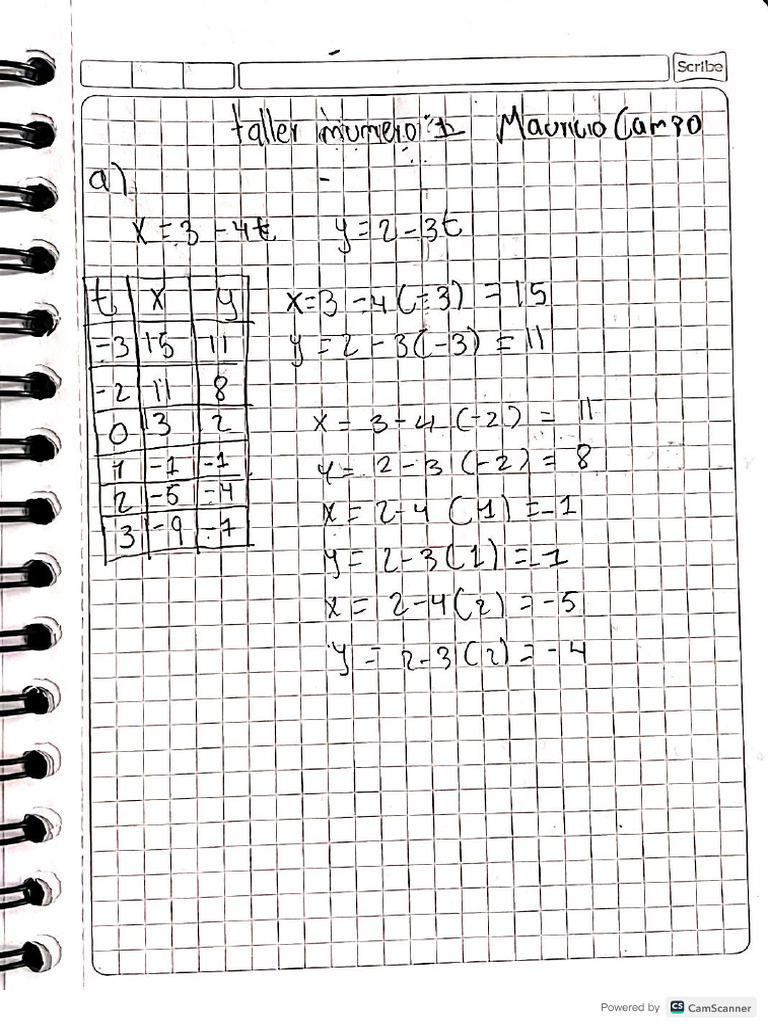 Scribe
taller numero:1 Mauricio Campo
a)
x = 3 - 4t y = 2 - 3t
t x y
-3 15 11
-2 11 8
0 3 2
1 -1 -1
2 -5 -4
3 -9 -7
x = 3 - 4 (-3) = 15
y = 2 - 3(-3) = 11
x = 3 - 4 (-2) = 11
y = 2 - 3 (-2) = 8
x = 2 - 4 (1) = -1
y = 2 - 3(1) = -1
x = 2 - 4(2) = -5
y = 2 - 3 (2) = -4
Powered by CS CamScanner